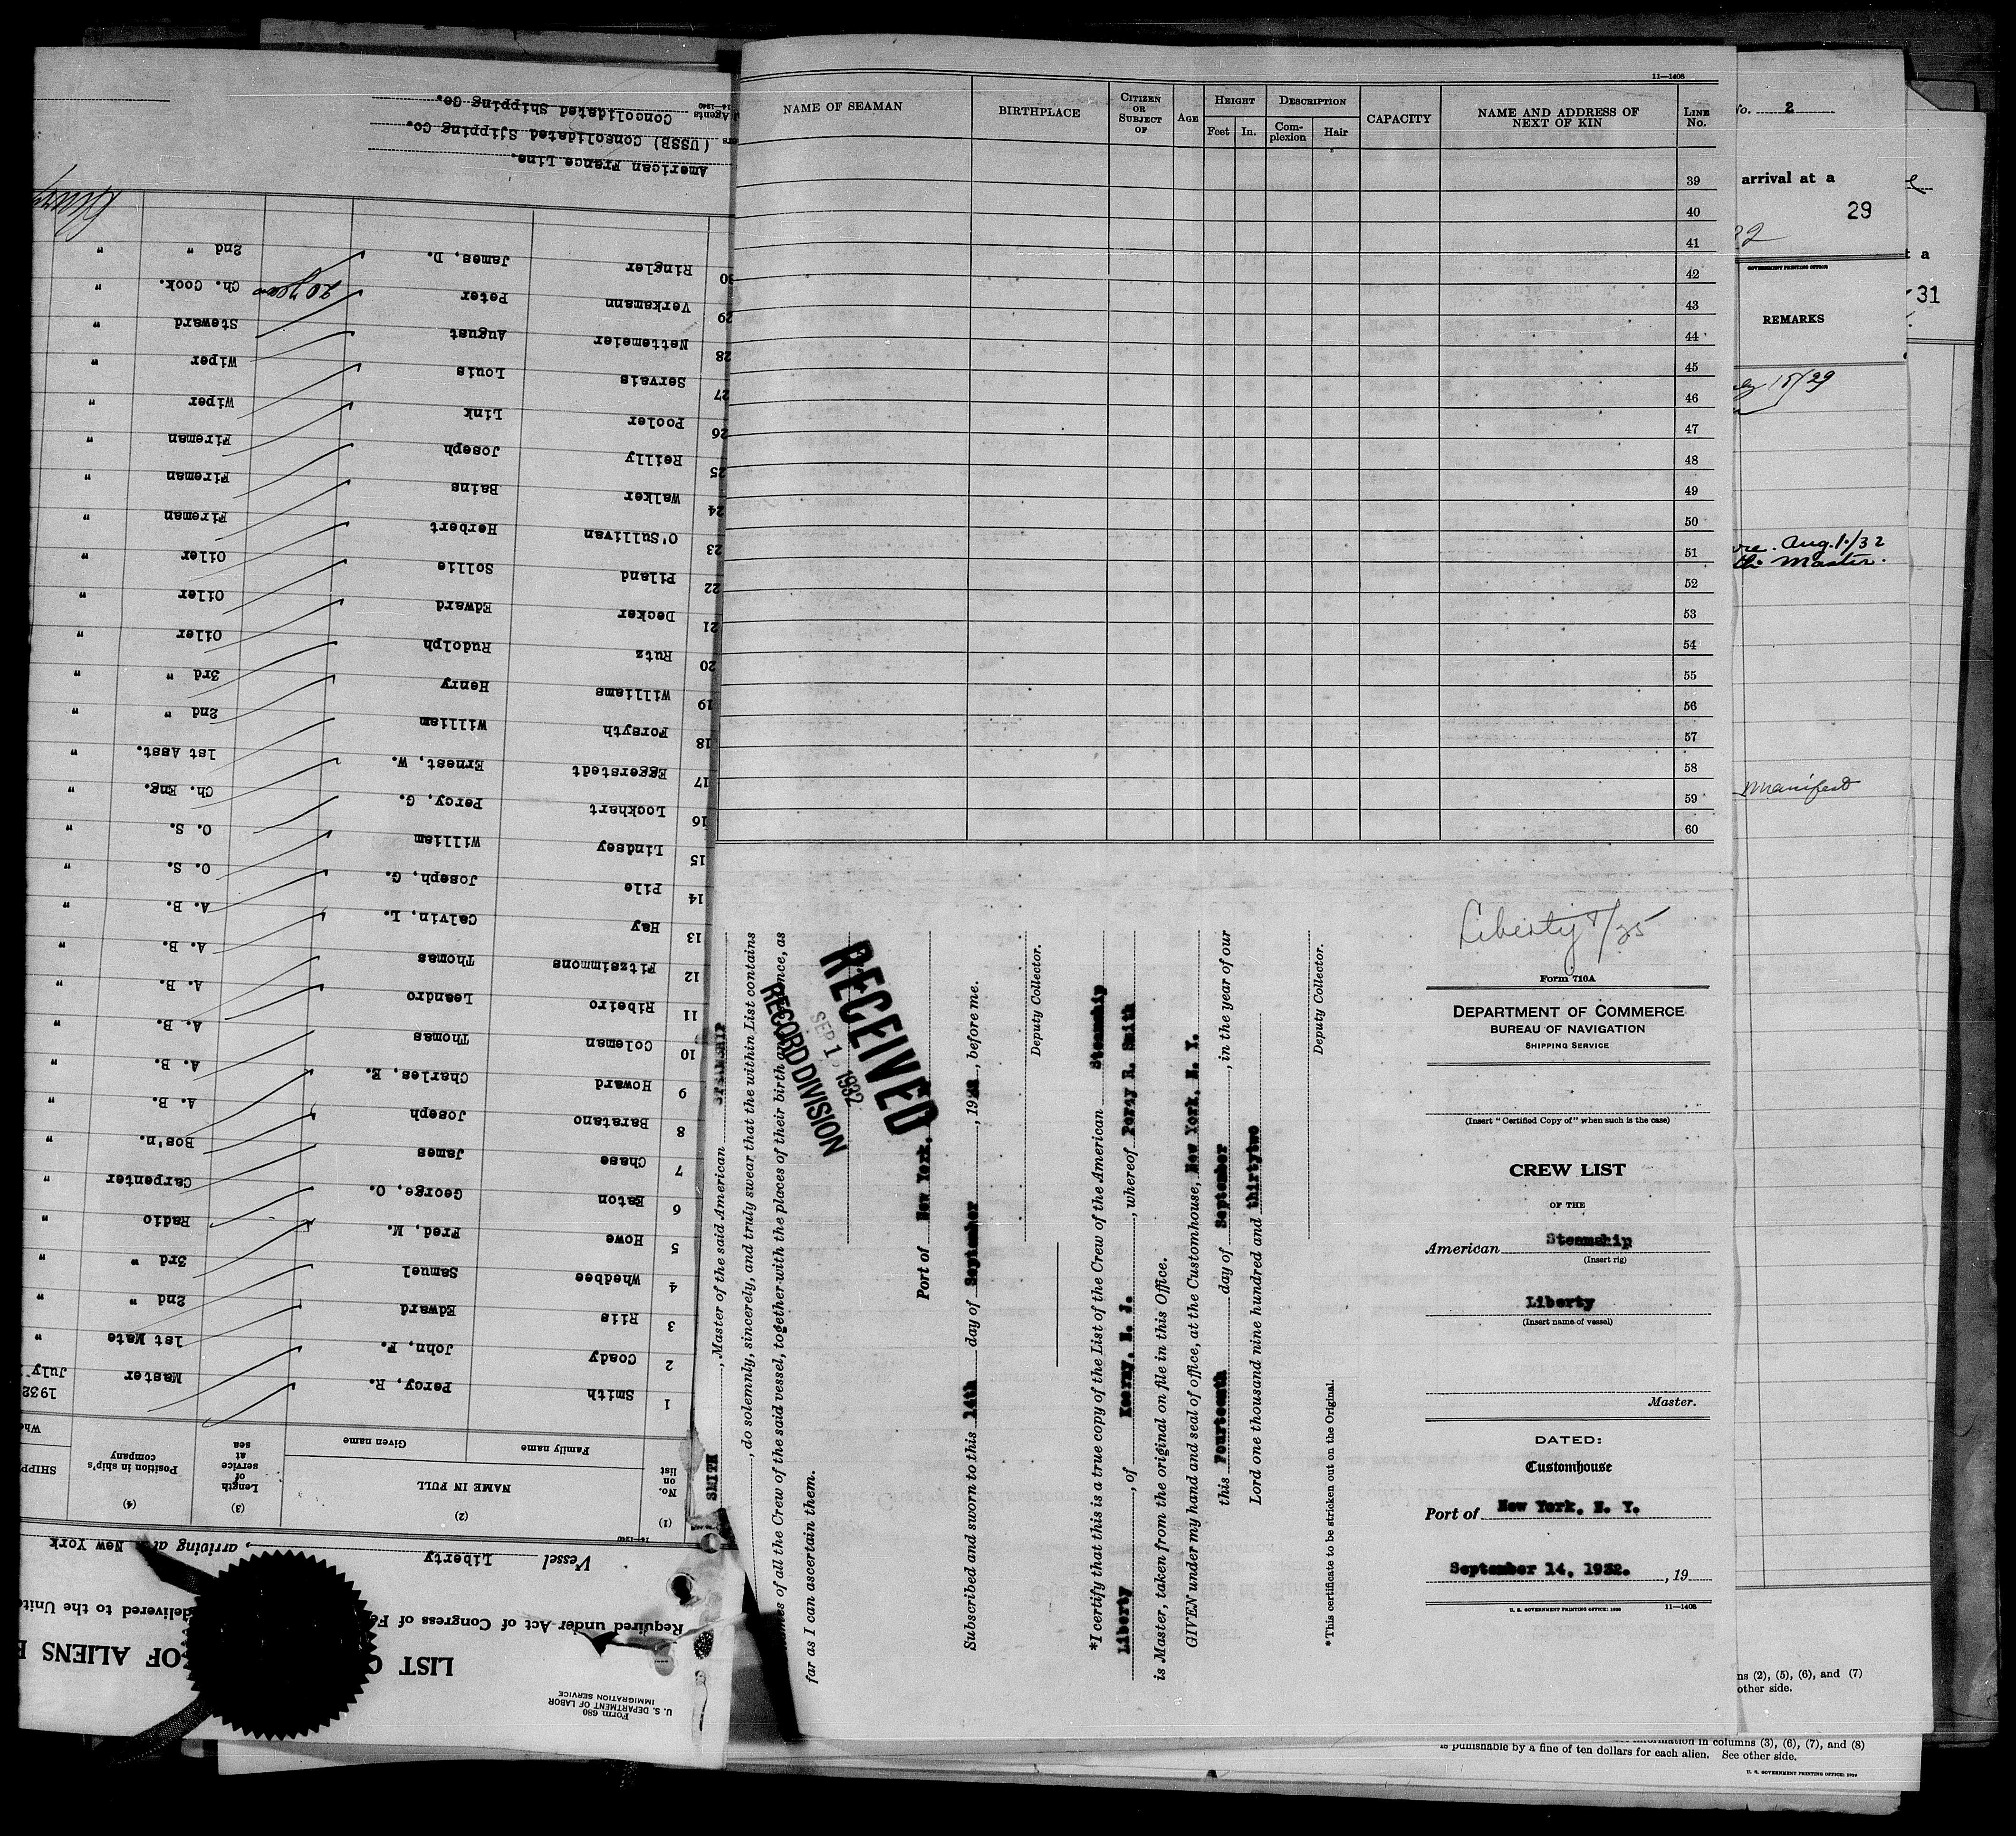 11—1408
NAME OF SEAMAN
BIRTHPLACE
CITIZEN OR SUBJECT OF
AGE
HEIGHT
Feet
In.
DESCRIPTION
Com-plexion
Hair
CAPACITY
NAME AND ADDRESS OF NEXT OF KIN
LINE No.
39
40
41
42
43
44
45
46
47
48
49
50
51
52
53
54
55
56
57
58
59
60
SMITH STEAMSHIP, Master of the said American
, do solemnly, sincerely, and truly swear that the within List contains
of all the Crew of the said vessel, together with the places of their birth
as
far as I can ascertain them.
RECEIVED
SEP 1 1932
RECORD DIVISION
Port of New York,
Subscribed and sworn to this 14th day of September, 19, before me.
Deputy Collector.
*I certify that this is a true copy of the List of the Crew of the American Steamship
Liberty, of Kearny, N. J., whereof Percy R. Smith
is Master, taken from the original on file in this Office.
GIVEN under my hand and seal of office, at the Customhouse, New York, N. Y.
this Fourteenth day of September, in the year of our
Lord one thousand nine hundred and thirtytwo
Deputy Collector.
*This certificate to be stricken out on the Original.
Liberty
Form 716A
DEPARTMENT OF COMMERCE
BUREAU OF NAVIGATION
SHIPPING SERVICE
(Insert "Certified Copy of" when such is the case)
CREW LIST
OF THE
American Steamship
(Insert rig)
Liberty
(Insert name of vessel)
Master.
DATED:
Customhouse
Port of New York, N. Y.
September 14, 1932. , 19
U. S. GOVERNMENT PRINTING OFFICE: 11—1408
Form 680
U. S. DEPARTMENT OF LABOR
IMMIGRATION SERVICE
LIST OF ALIENS
Required under Act of Congress of
delivered to the
Vessel Liberty, arriving at New York
14—1240
(1) No. on list
(2) NAME IN FULL
Family name
Given name
(3) Length of service at sea
(4) Position in ship's company
1 Smith Percy, R. Master July 1932
2 Coady John, F. 1st Mate "
3 Riis Edward 2nd " "
4 Whedbee Samuel 3rd " "
5 Howe Fred, M. Radio "
6 Eaton George, O. Carpenter "
7 Chase James Bos'n. "
8 Baratano Joseph A. B. "
9 Howard Charles, E. A. B. "
10 Coleman Thomas A. B. "
11 Ribeiro Leandro A. B. "
12 Fitzsimmons Thomas A. B. "
13 Hay Calvin, L. A. B. "
14 Pile Joseph, G. O. S. "
15 Lindsey William O. S. "
16 Lockhart Percy, G. Ch. Eng. "
17 Eggerstedt Ernest, W. 1st Asst. "
18 Forsyth William 2nd " "
19 Williams Henry 3rd " "
20 Rutz Rudolph Oiler "
21 Decker Edward Oiler "
22 Piland Sollie Oiler "
23 O'Sullivan Herbert Fireman "
24 Walker Bains Fireman "
25 Reilly Joseph Fireman "
26 Pooler Link Wiper "
27 Servais Louis Wiper "
28 Nettemeier August Steward "
29 Verkamann Peter 20 years Ch. Cook. "
30 Ringler James, D. 2nd " "
American France Line.
(USSB) Consolidated Sjipping Co.
Agents Consolidated Shipping Co.
14—1240
No. 2
arrival at a
29
GOVERNMENT PRINTING OFFICE
REMARKS
15/29
Aug. 1./32
the Master.
Manifest
t a
31
ns (2), (5), (6), and (7)
other side.
information in columns (3), (6), (7), and (8)
is punishable by a fine of ten dollars for each alien. See other side.
U. S. GOVERNMENT PRINTING OFFICE: 1929